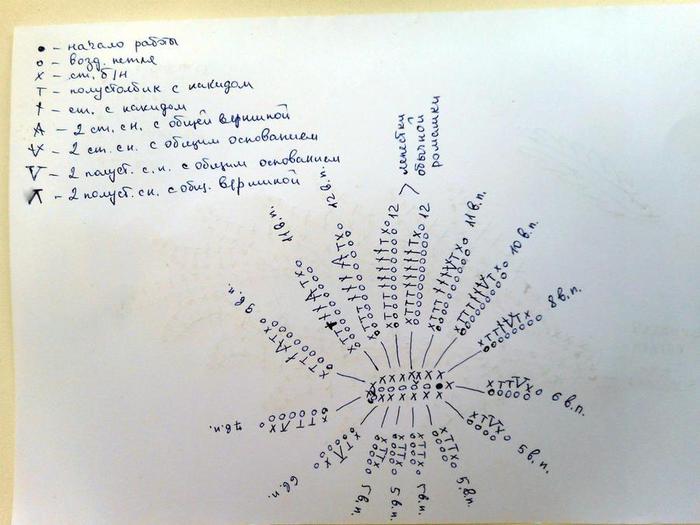 • – начало работы
o – возд. петля
x – ст. б/н
T – полустолбик с накидом
† – ст. с накидом
– 2 ст. сн. с общей вершиной
– 2 ст. сн. с общим основанием
V – 2 полуст. с.н. с общим основанием
– 2 полуст. сн. с общ. вершиной
лепестки
обычной
ромашки
11 в.п.
12 в.п.
12
12
11 в.п.
10 в.п.
8 в.п.
6 в.п.
5 в.п.
5 в.п.
5 в.п.
5 в.п.
5 в.п.
6 в.п.
7 в.п.
9 в.п.